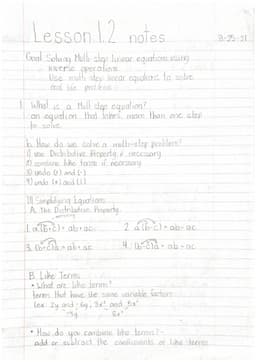 Lesson 1.2 notes 8-25-21
Goal: Solving Multi-step linear equations using
inverse operations
Use multi step linear equations to solve
real life problems
I. What is a Multi step equation?
an equation that takes more than one step
to solve.
b. How do we solve a multi-step problem?
1) use Distributive Property if necessary
2) combine like terms if necessary
3) undo (+) and (-)
4) undo (×) and (÷)
III Simplifying Equations
A. The Distributive Property
1. a(b+c) = ab+ac 2. a(b-c) = ab-ac
3. (b+c)a = ab+ac 4. (b-c)a = ab-ac
B. Like Terms
• What are like terms?
terms that have the same variable factors
• How do you combine like terms?-
add or subtract the coefficients of like terms